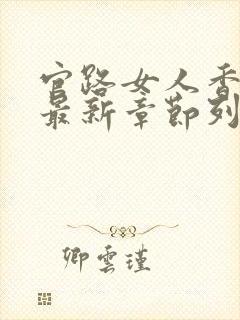 官路女人香
最新章节列
卿雲瑾